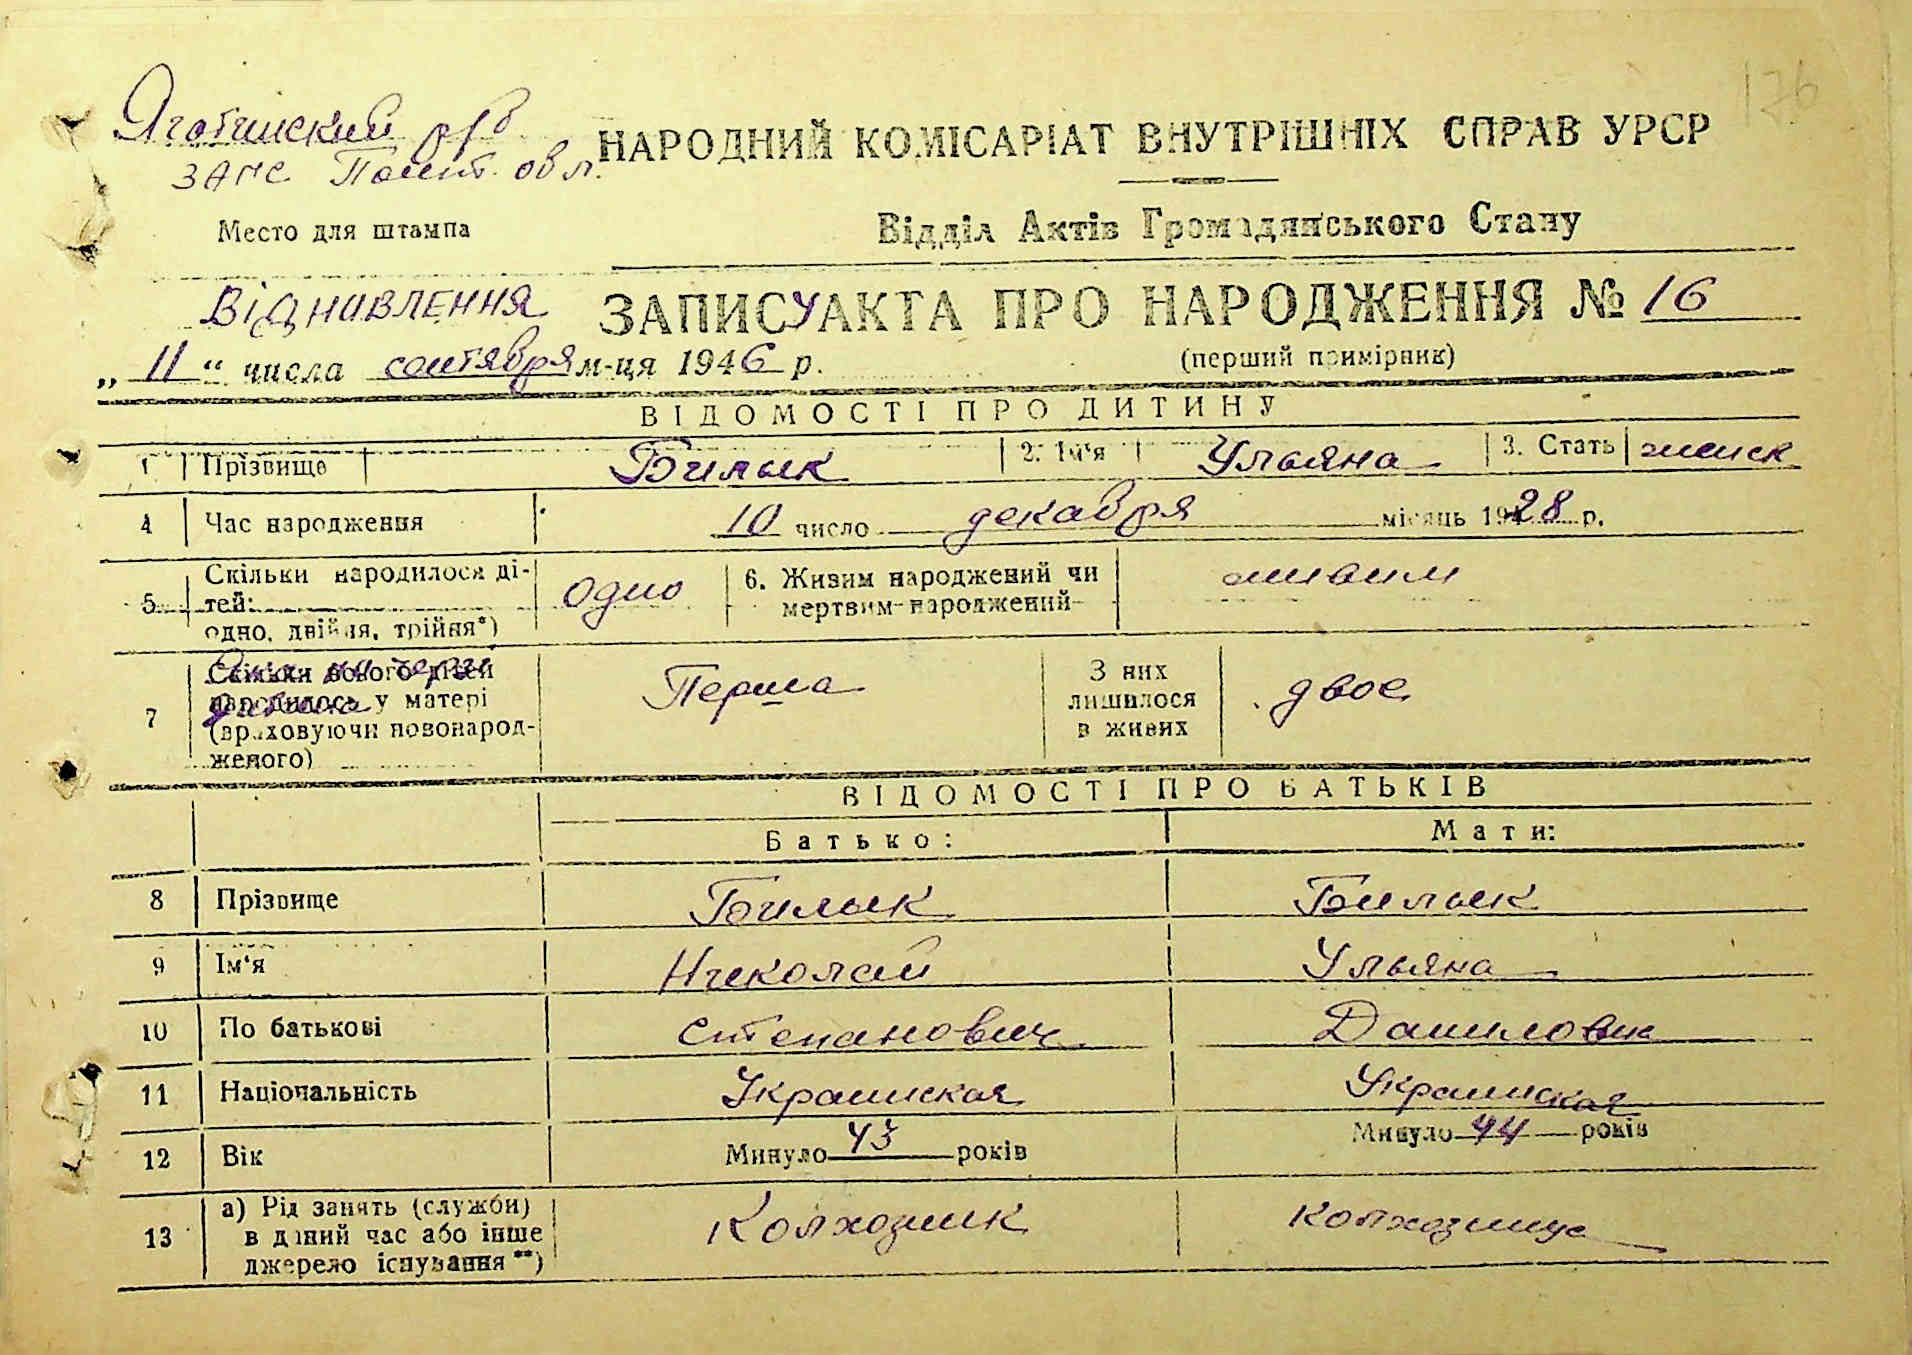 176
Яготинский р/б
ЗАГС Полт. обл.
НАРОДНИЙ КОМІСАРІАТ ВНУТРІШНІХ СПРАВ УРСР
Место для штампа
Відділ Актів Громадянського Стану
ВІДНОВЛЕННЯ ЗАПИСУ АКТА ПРО НАРОДЖЕННЯ № 16
„ 11 “ числа сентября м-ця 1946 р.
(перший примірник)
ВІДОМОСТІ ПРО ДИТИНУ
1 Прізвище Билык 2. Ім'я Ульяна 3. Стать женск
4 Час народження 10 число декабря місяць 1928 р.
5 Скільки народилося ді-
тей:
одно, двійня, трійня*)
одно
6. Живим народжений чи
мертвим народжений
живим
7 Скільки всього дітей
народилось у матері
(враховуючи новонарод-
женого)
Перша
З них
лишилося
в живих
двое
ВІДОМОСТІ ПРО БАТЬКІВ
Батько: Мати:
8 Прізвище Билык Билык
9 Ім'я Николай Ульяна
10 По батькові Степанович Даниловна
11 Національність Украинская Украинская
12 Вік Минуло 43 років Минуло 44 років
13 а) Рід занять (служби)
в даний час або інше
джерело існування**)
Колхозник колхозница